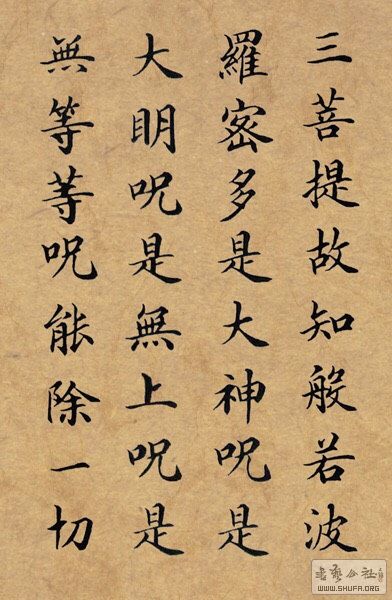 三菩提故知般若波
羅密多是大神呪是
大明呪是無上呪是
無等等呪能除一切
WWW.SHUFA.ORG